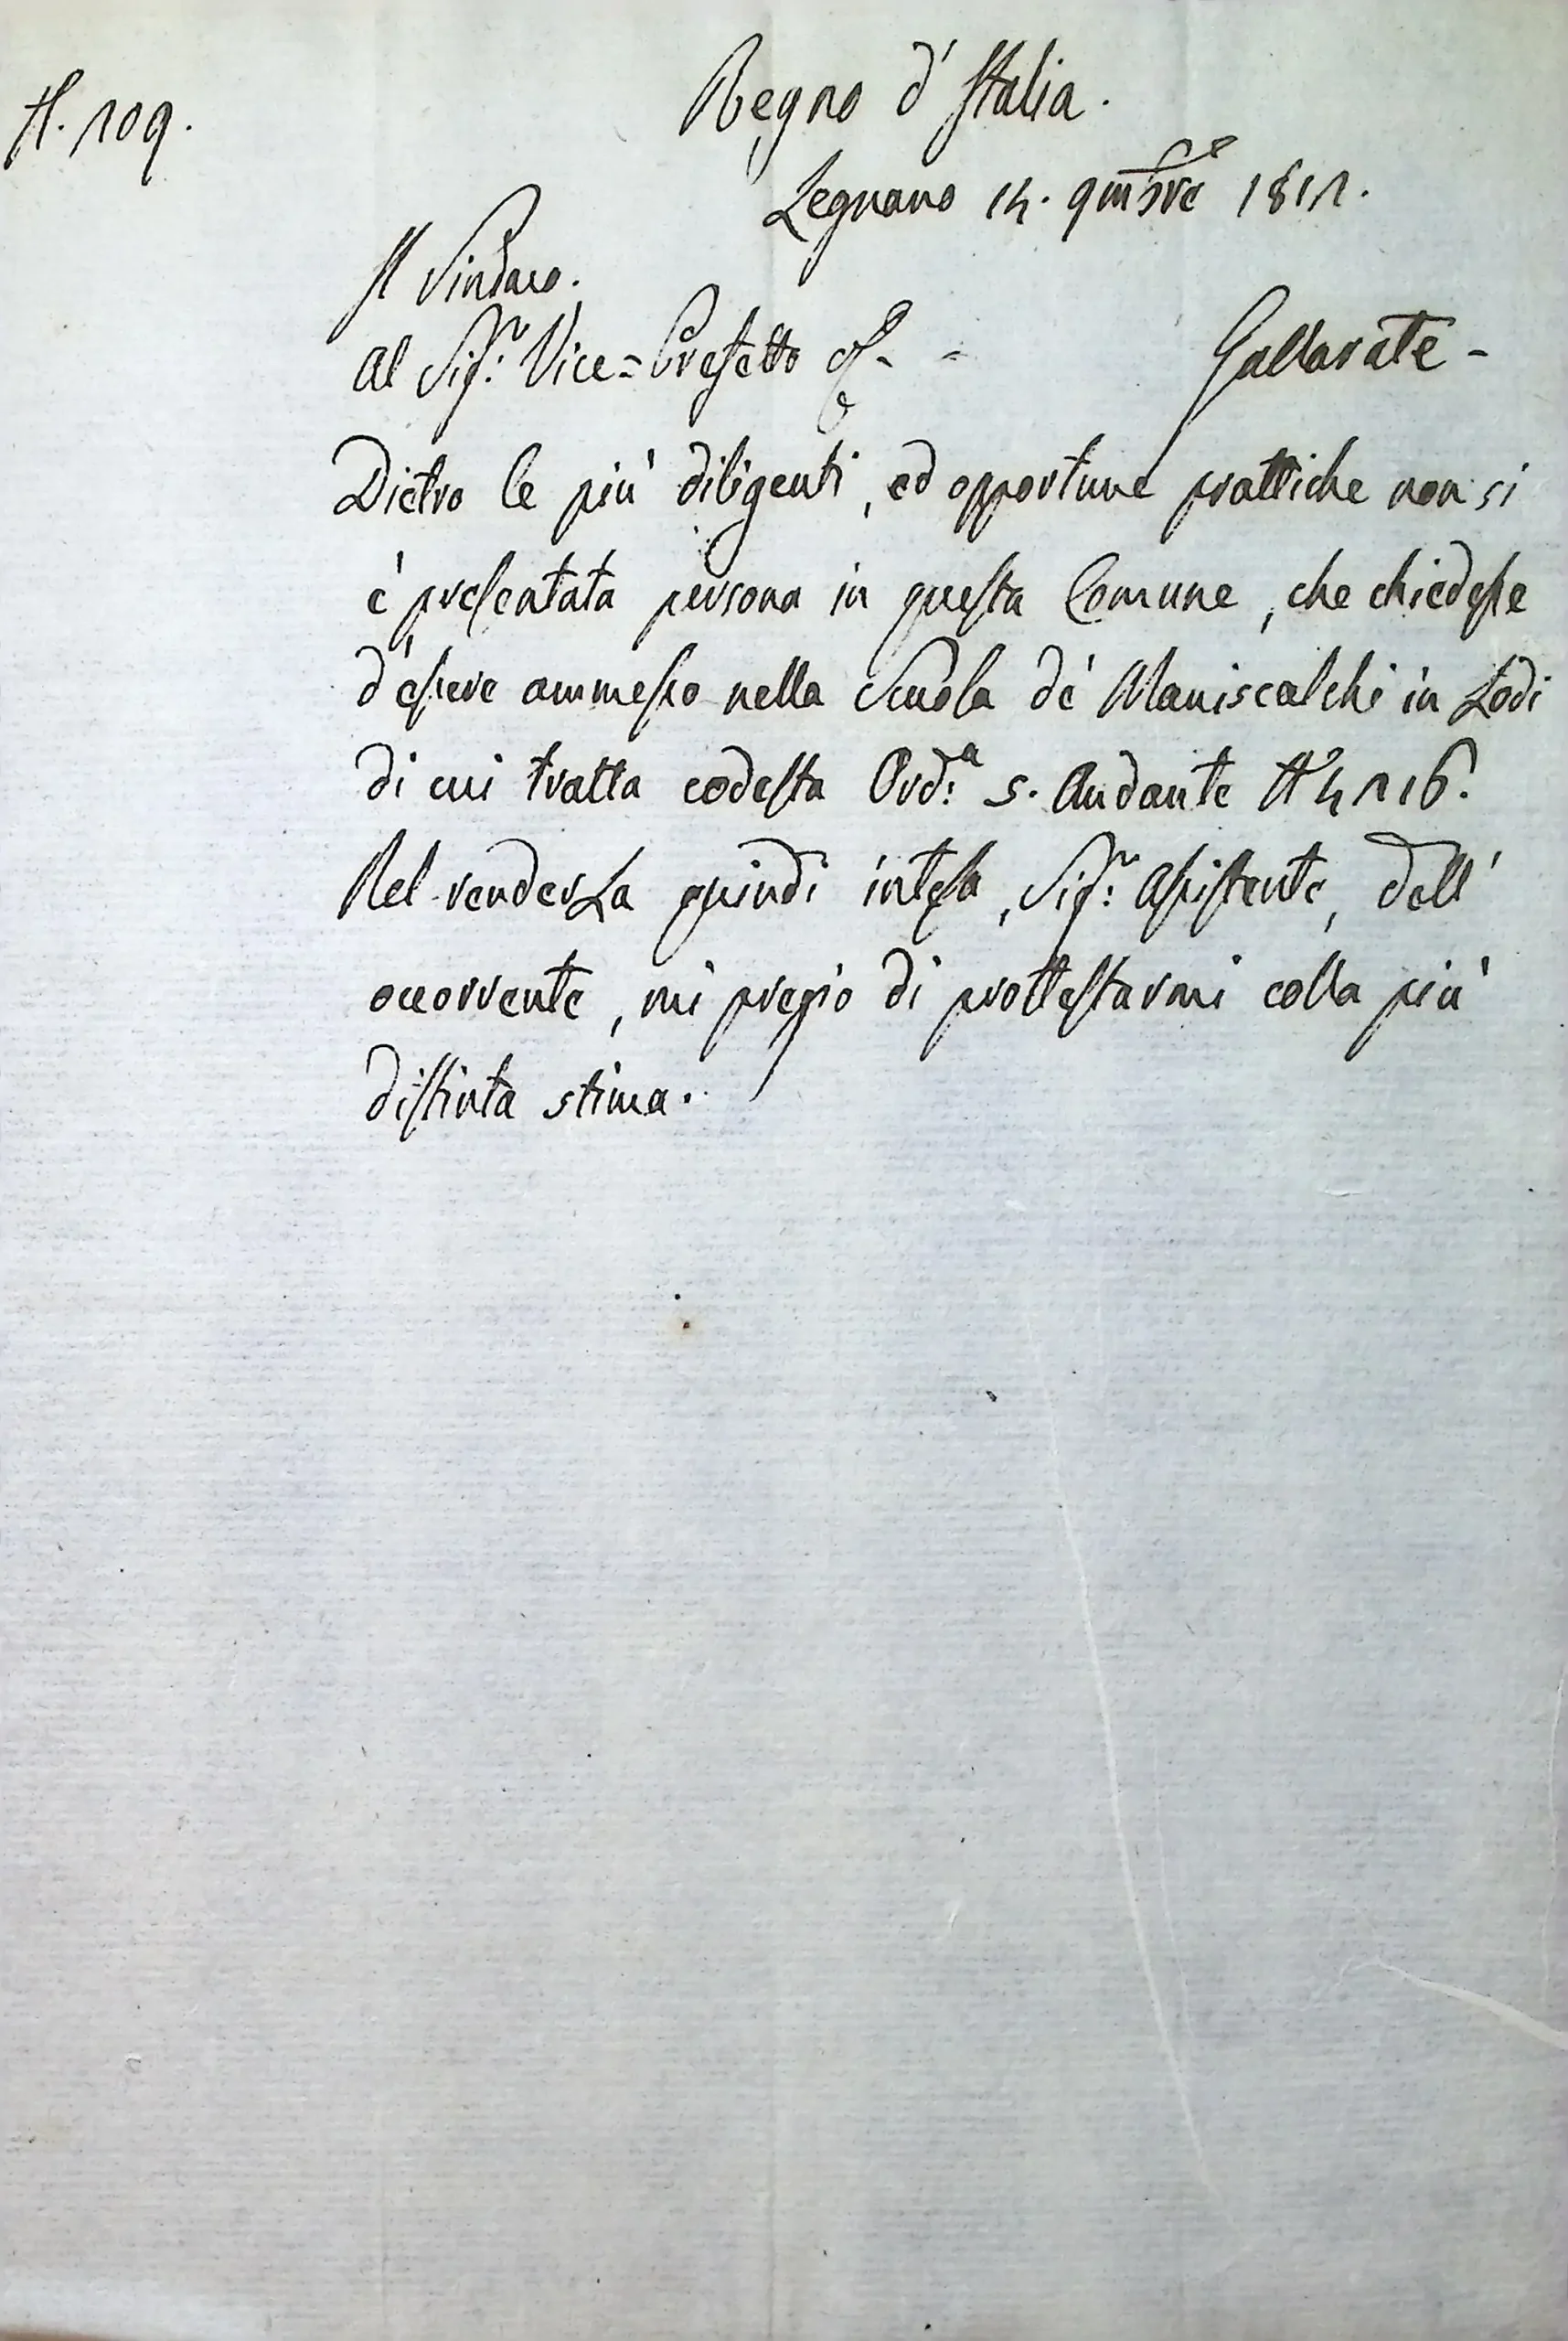 N. 109.
Regno d'Italia.
Legnano 14. 9mbre 1811.
Il Sindaco.
Al Sigr. Vice=Prefetto Gallarate-
Dietro le più diligenti, ed opportune prattiche non si
è presentata persona in questa Comune, che chiedesse
d'essere ammesso nella Scuola de' Maniscalchi in Lodi
di cui tratta codesta Ord.a 5. Andante N° 4116.
Nel renderLa quindi intesa, Sigr. Assistente, dell'
occorrente, mi pregio di prottestarmi colla più
distinta stima.